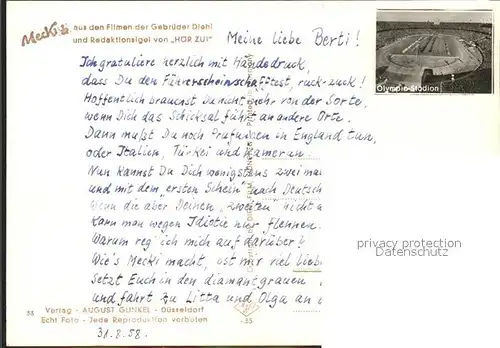 Mecki
aus den Filmen der Gebrüder Diehl
und Redaktionsigel von „HÖR ZU!"
Meine liebe Berti!
Ich gratuliere herzlich mit Händedruck,
dass Du den Führerschein schafftest, ruck-zuck!
Hoffentlich brauchst Du nicht mehr von der Sorte,
wenn Dich das Schicksal führt an andere Orte.
Dann mußt Du noch Prüfungen in England tun,
oder Italien, Türkei und Kamerun.
Nun kannst Du Dich wenigstens zweimal
und mit dem „ersten Schein" nach Deutsch
Wenn die aber Deinen „zweiten" nicht a
Kann man wegen Idiotie nur flennen.
Warum reg' ich mich auf darüber?
Wie's Mecki macht, ist mir viel liebe
Setzt Euch in den diamantgrauen
und fahrt zu Litta und Olga an
38 Verlag - AUGUST GUNKEL - Düsseldorf
Echt Foto - Jede Reproduktion verboten
35
31.8.58.
Olympia-Stadion
privacy protection
Datenschutz